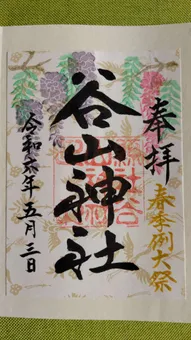 奉拝
春季例大祭
谷山神社
令和六年五月三日